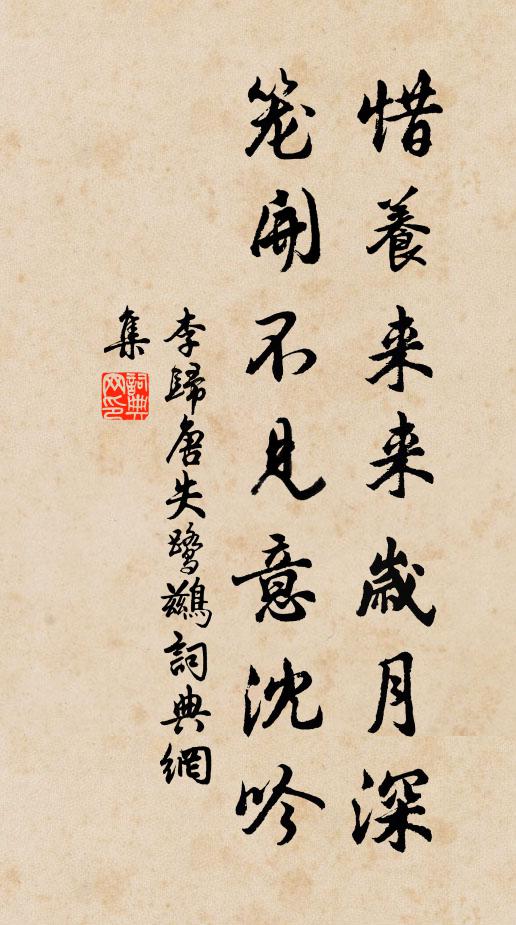 惜養来来歲月深
笼開不見意沈吟
李歸唐失鷺鷀詞典網
集
詞典网印